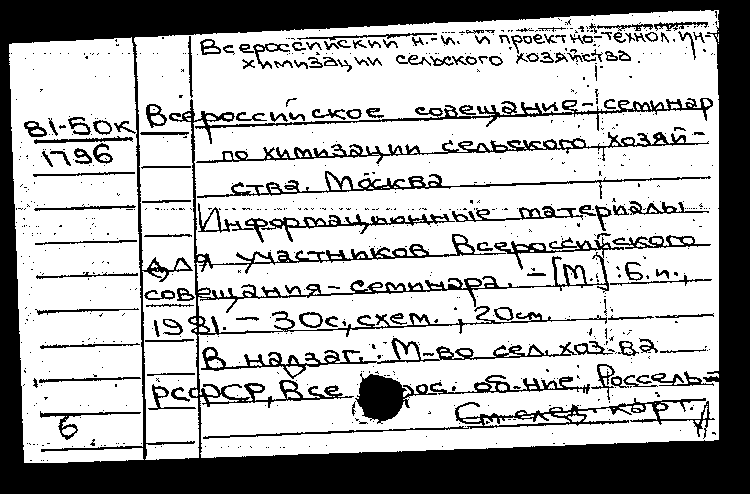 Всероссийский н.-и. и проектно-технол. ин-т
химизации сельского хозяйства.
81-50к
1796
Всероссийское совещание-семинар
по химизации сельского хозяй-
ства. Москва
Информационные материалы
для участников Всероссийского
совещания-семинара. - [М.] : Б.и.,
1981. - 30с., схем. ; 20см.
В надзаг.: М-во сел. хоз-ва
РСФСР, Все рос. об-ние „Россель-
См. след. карт.
6